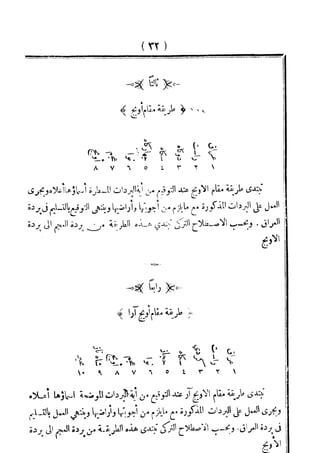 ( ٣٢ )
ثالثاً
﴿ طريقة مقام أويج ﴾
عراق راست دوكاه
٨ ٧ ٦ ٥ ٤ ٣ ٢ ١
تبتدى طريقة مقام الاويج عند التوقيع من أية البردات المسطرة أسماؤها أعلاه ويجرى
العمل على البردات المذكورة مع مايلزم من أجوبتها وأراضيها وينتهى التوقيع بالتسليم فى بردة
العراق . وبحسب الاصطلاح التركى تبتدى هذه الطريقة من بردة العجم الى بردة
الاويج
رابعاً
﴿ طريقة مقام أويج آرا ﴾
عراق راست
١٠ ٩ ٨ ٧ ٦ ٥ ٤ ٣ ٢ ١
تبتدى طريقة مقام الاويج آر عند التوقيع من أية البردات الموضحة اسماؤها أعلاه
ويجرى العمل على البردات المذكورة مع مايلزم من أجوبتها وأراضيها وينتهى العمل بالتسليم
فى بردة العراق . وبحسب الاصطلاح التركى تبتدى هذه الطريقة من بردة العجم الى بردة
الأويج